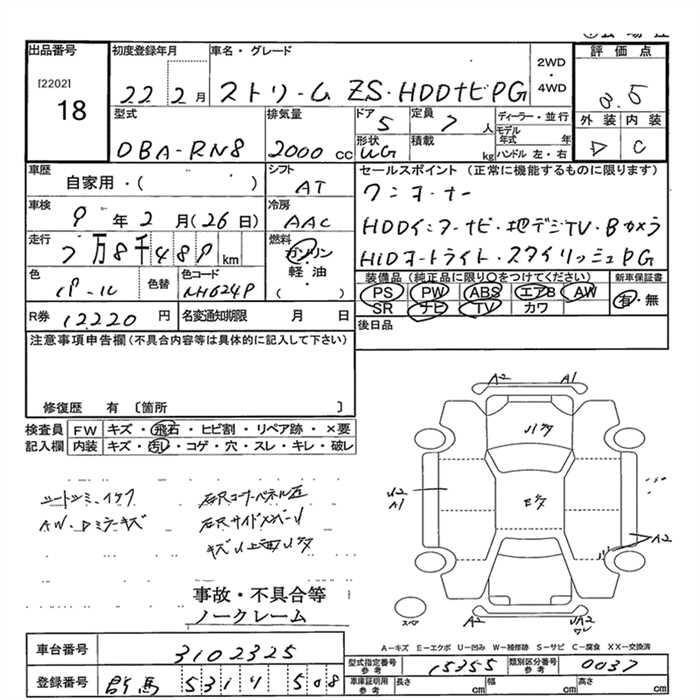 出品番号 初度登録年月 車名・グレード 2WD・4WD 評価点
[2202]
18 22 2月 ストリーム ZS・HDDナビPG 3.5
型式 排気量 ドア 5 定員 7人 ディーラー・並行 外装 内装
モデル年式 年
DBA-RN8 2000cc 形状 WG 積載 kg ハンドル 左・右 D C
車歴 自家用・( ) シフト AT セールスポイント (正常に機能するものに限ります)
ワンオーナー
車検 9年2月(26日) 冷房 AAC HDDインターナビ・地デジTV・Bカメラ
走行 7万8千489km 燃料 ガソリン HiDオートライト・スタイリッシュPG
軽油
( )
色 パール 色替 色コード NH624P 装備品(純正品に限り○をつけてください) 新車保証書
PS PW ABS エアB AW 有・無
SR ナビ TV カワ
R券 12220円 名変通知期限 月 日 後日品
注意事項申告欄(不具合内容等は具体的に記入して下さい)
修復歴 有 〔箇所 〕
検査員 FW キズ・飛石・ヒビ割・リペア跡・×要
記入欄 内装 キズ・汚レ・コゲ・穴・スレ・キレ・破レ
A2 A1
A1
A2
A2
スペア
事故・不具合等
ノークレーム
A-キズ E-エクボ U-凹み W-補修跡 S-サビ C-腐食 XX-交換済
車台番号 3102325
型式指定番号 参考 15355 類別区分番号 参考 0037
登録番号 群馬 531 508
車庫証明用 参考 長さ cm 幅 cm 高さ cm